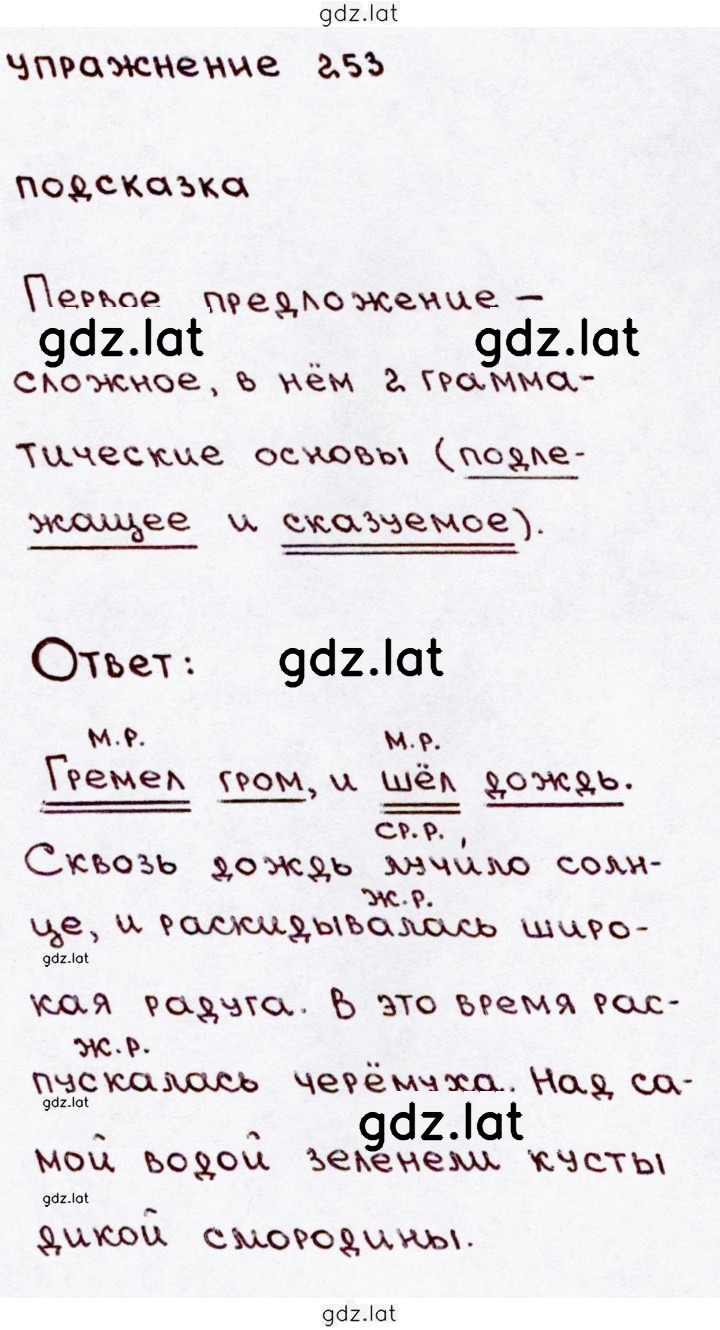 gdz.lat
упражнение 253
подсказка
Первое предложение –
gdz.lat gdz.lat
сложное, в нём 2 грамма-
тические основы (подле-
жащее и сказуемое).
Ответ: gdz.lat
м.р. м.р.
Гремел гром, и шёл дождь.
ср.р.
Сквозь дождь лучило солн-
ж.р.
це, и раскидывалась широ-
gdz.lat
кая радуга. В это время рас-
ж.р.
пускалась черёмуха. Над са-
gdz.lat gdz.lat
мой водой зеленели кусты
gdz.lat
дикой смородины.
gdz.lat